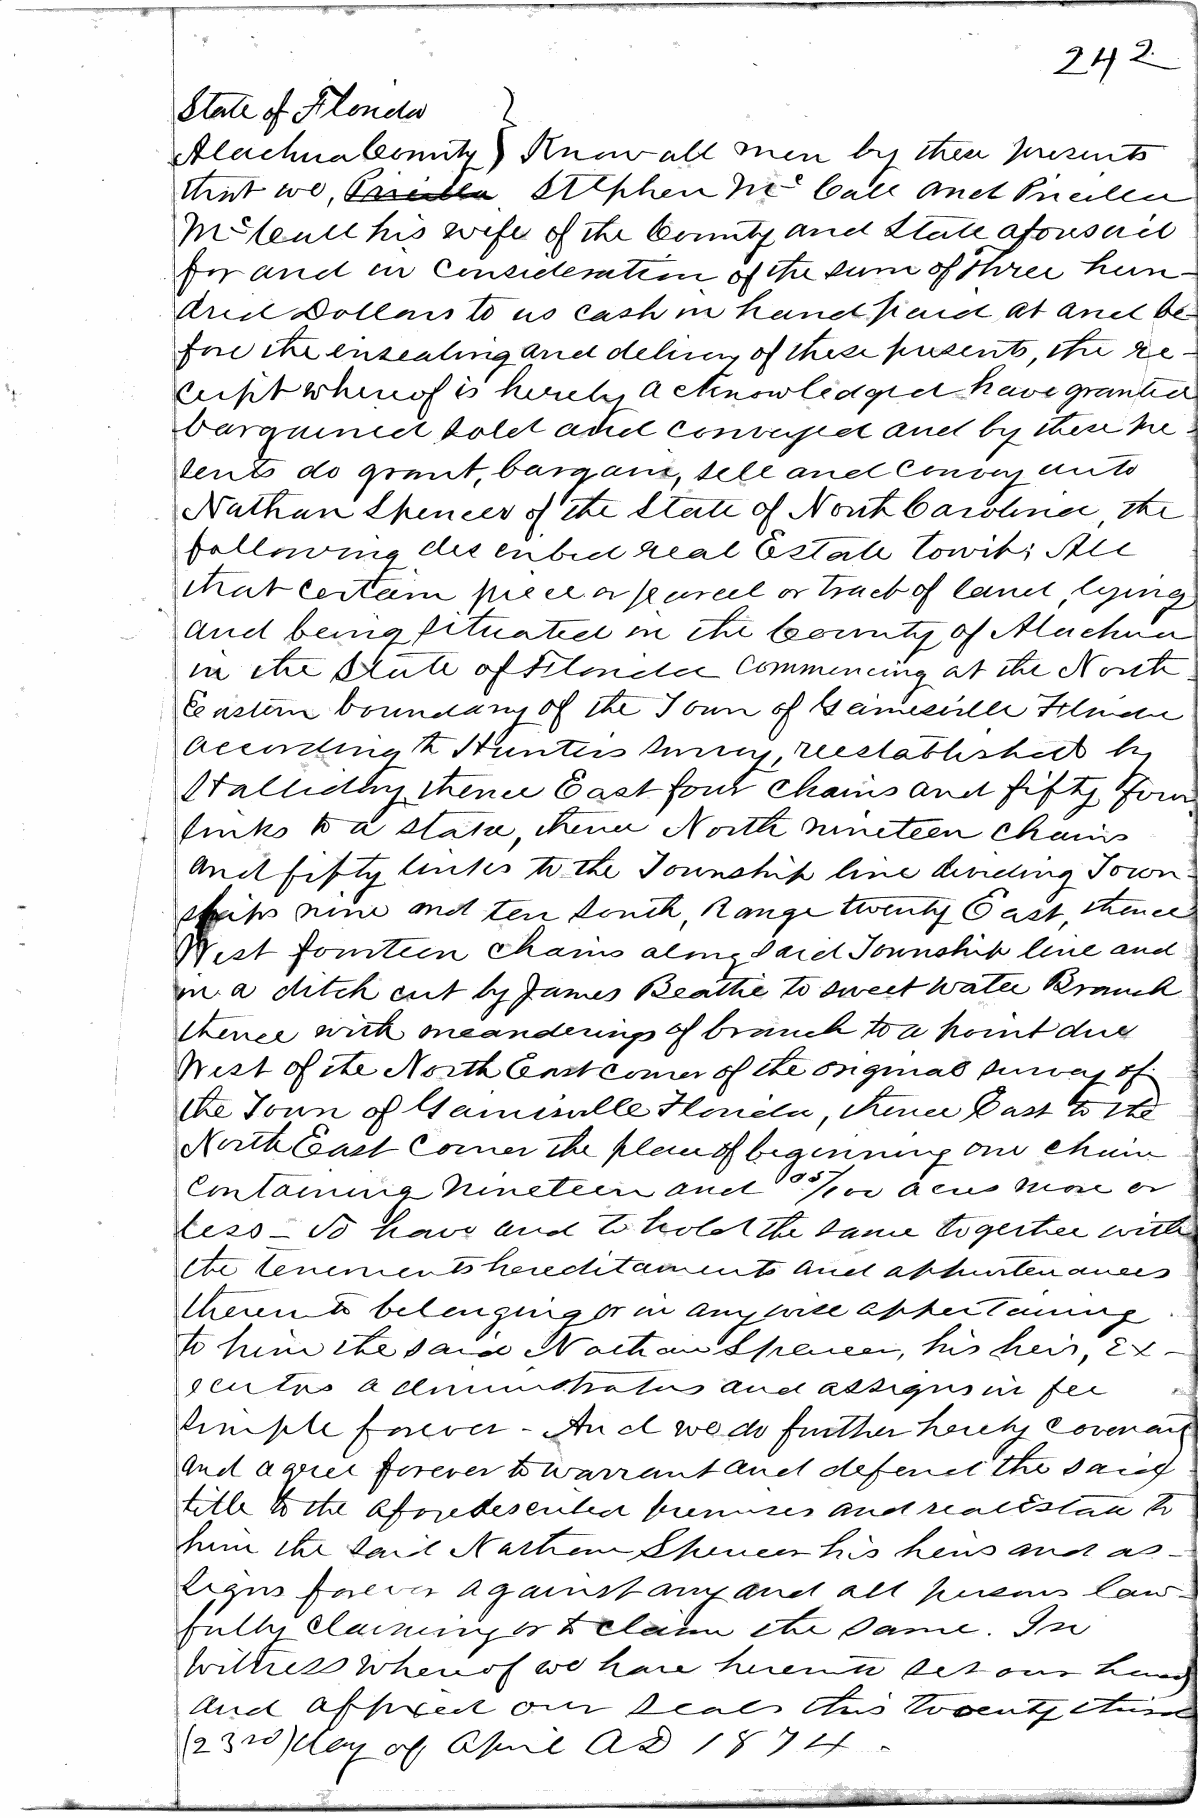 242
State of Florida }
Alachua County } Know all men by these presents
that we, Pricilla Stephen McCall and Pricilla
McCall his wife of the County and State aforesaid
for and in consideration of the sum of Three hun-
dred Dollars to us cash in hand paid at and be-
fore the ensealing and delivery of these presents, the re-
ceipt whereof is hereby acknowledged have granted
bargained sold and conveyed and by these pre-
sents do grant, bargain, sell and convey unto
Nathan Spencer of the State of North Carolina, the
following described real Estate towit; All
that certain piece or parcel or tract of land, lying
and being situated in the County of Alachua
in the State of Florida commencing at the North
Eastern boundary of the Town of Gainesville Florida
according to Hunters survey, reestablished by
Halliday, thence East four chains and fifty four
links to a stake, thence North nineteen chains
and fifty links to the Township line dividing Town-
ships nine and ten South, Range twenty East, thence
West fourteen chains along said Township line and
in a ditch cut by James Beattie to sweet water Branch
thence with meanderings of branch to a point due
West of the North East corner of the original survey of
the Town of Gainesville Florida, thence East to the
North East corner the place of beginning one chain
containing nineteen and 05/100 acres more or
less - To have and to hold the same together with
the tenements hereditaments and appurtenances
thereunto belonging or in anywise appertaining
to him the said Nathan Spencer, his heirs, Ex-
ecutors administrators and assigns in fee
simple forever - And we do further hereby covenant
and agree forever to warrant and defend the said
title to the aforedescribed premises and real Estate to
him the said Nathan Spencer his heirs and as-
signs forever against any and all persons law-
fully claiming or to claim the same. In
witness whereof we have hereunto set our hands
and affixed our seals this twenty third
(23rd) day of April AD 1874.